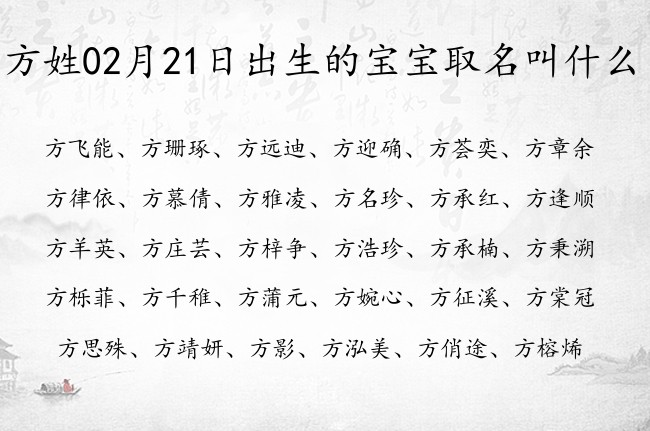 方姓02月21日出生的宝宝取名叫什么
方飞能、方珊琢、方远迪、方迎确、方荟奕、方章余
方律依、方慕倩、方雅凌、方名珍、方承红、方逢顺
方羊英、方庄芸、方梓争、方浩珍、方承楠、方秉溯
方栎菲、方千稚、方蒲元、方婉心、方征溪、方棠冠
方思殊、方靖妍、方影、方泓美、方俏途、方榕烯